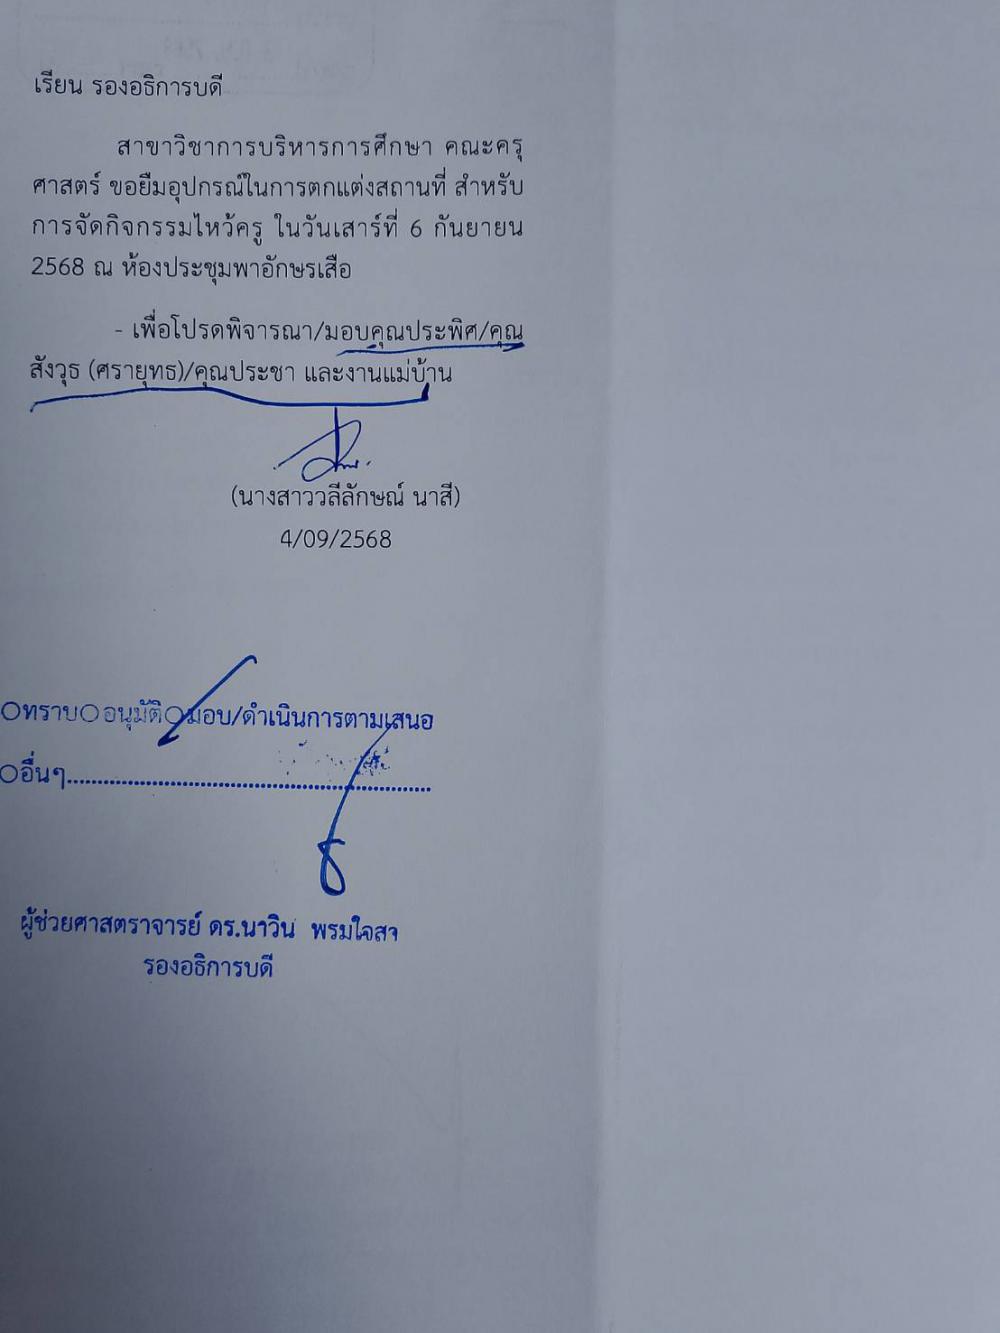 เรียน รองอธิการบดี
สาขาวิชาการบริหารการศึกษา คณะครุ
ศาสตร์ ขอยืมอุปกรณ์ในการตกแต่งสถานที่ สำหรับ
การจัดกิจกรรมไหว้ครู ในวันเสาร์ที่ 6 กันยายน
2568 ณ ห้องประชุมพาอักษรเสือ
- เพื่อโปรดพิจารณา/มอบคุณประพิศ/คุณ
สังวุธ (ศรายุทธ)/คุณประชา และงานแม่บ้าน
(นางสาววลีลักษณ์ นาสี)
4/09/2568
○ทราบ○อนุมัติ○มอบ/ดำเนินการตามเสนอ
○อื่นๆ..............................................................
ผู้ช่วยศาสตราจารย์ ดร.นาวิน พรมใจสา
รองอธิการบดี